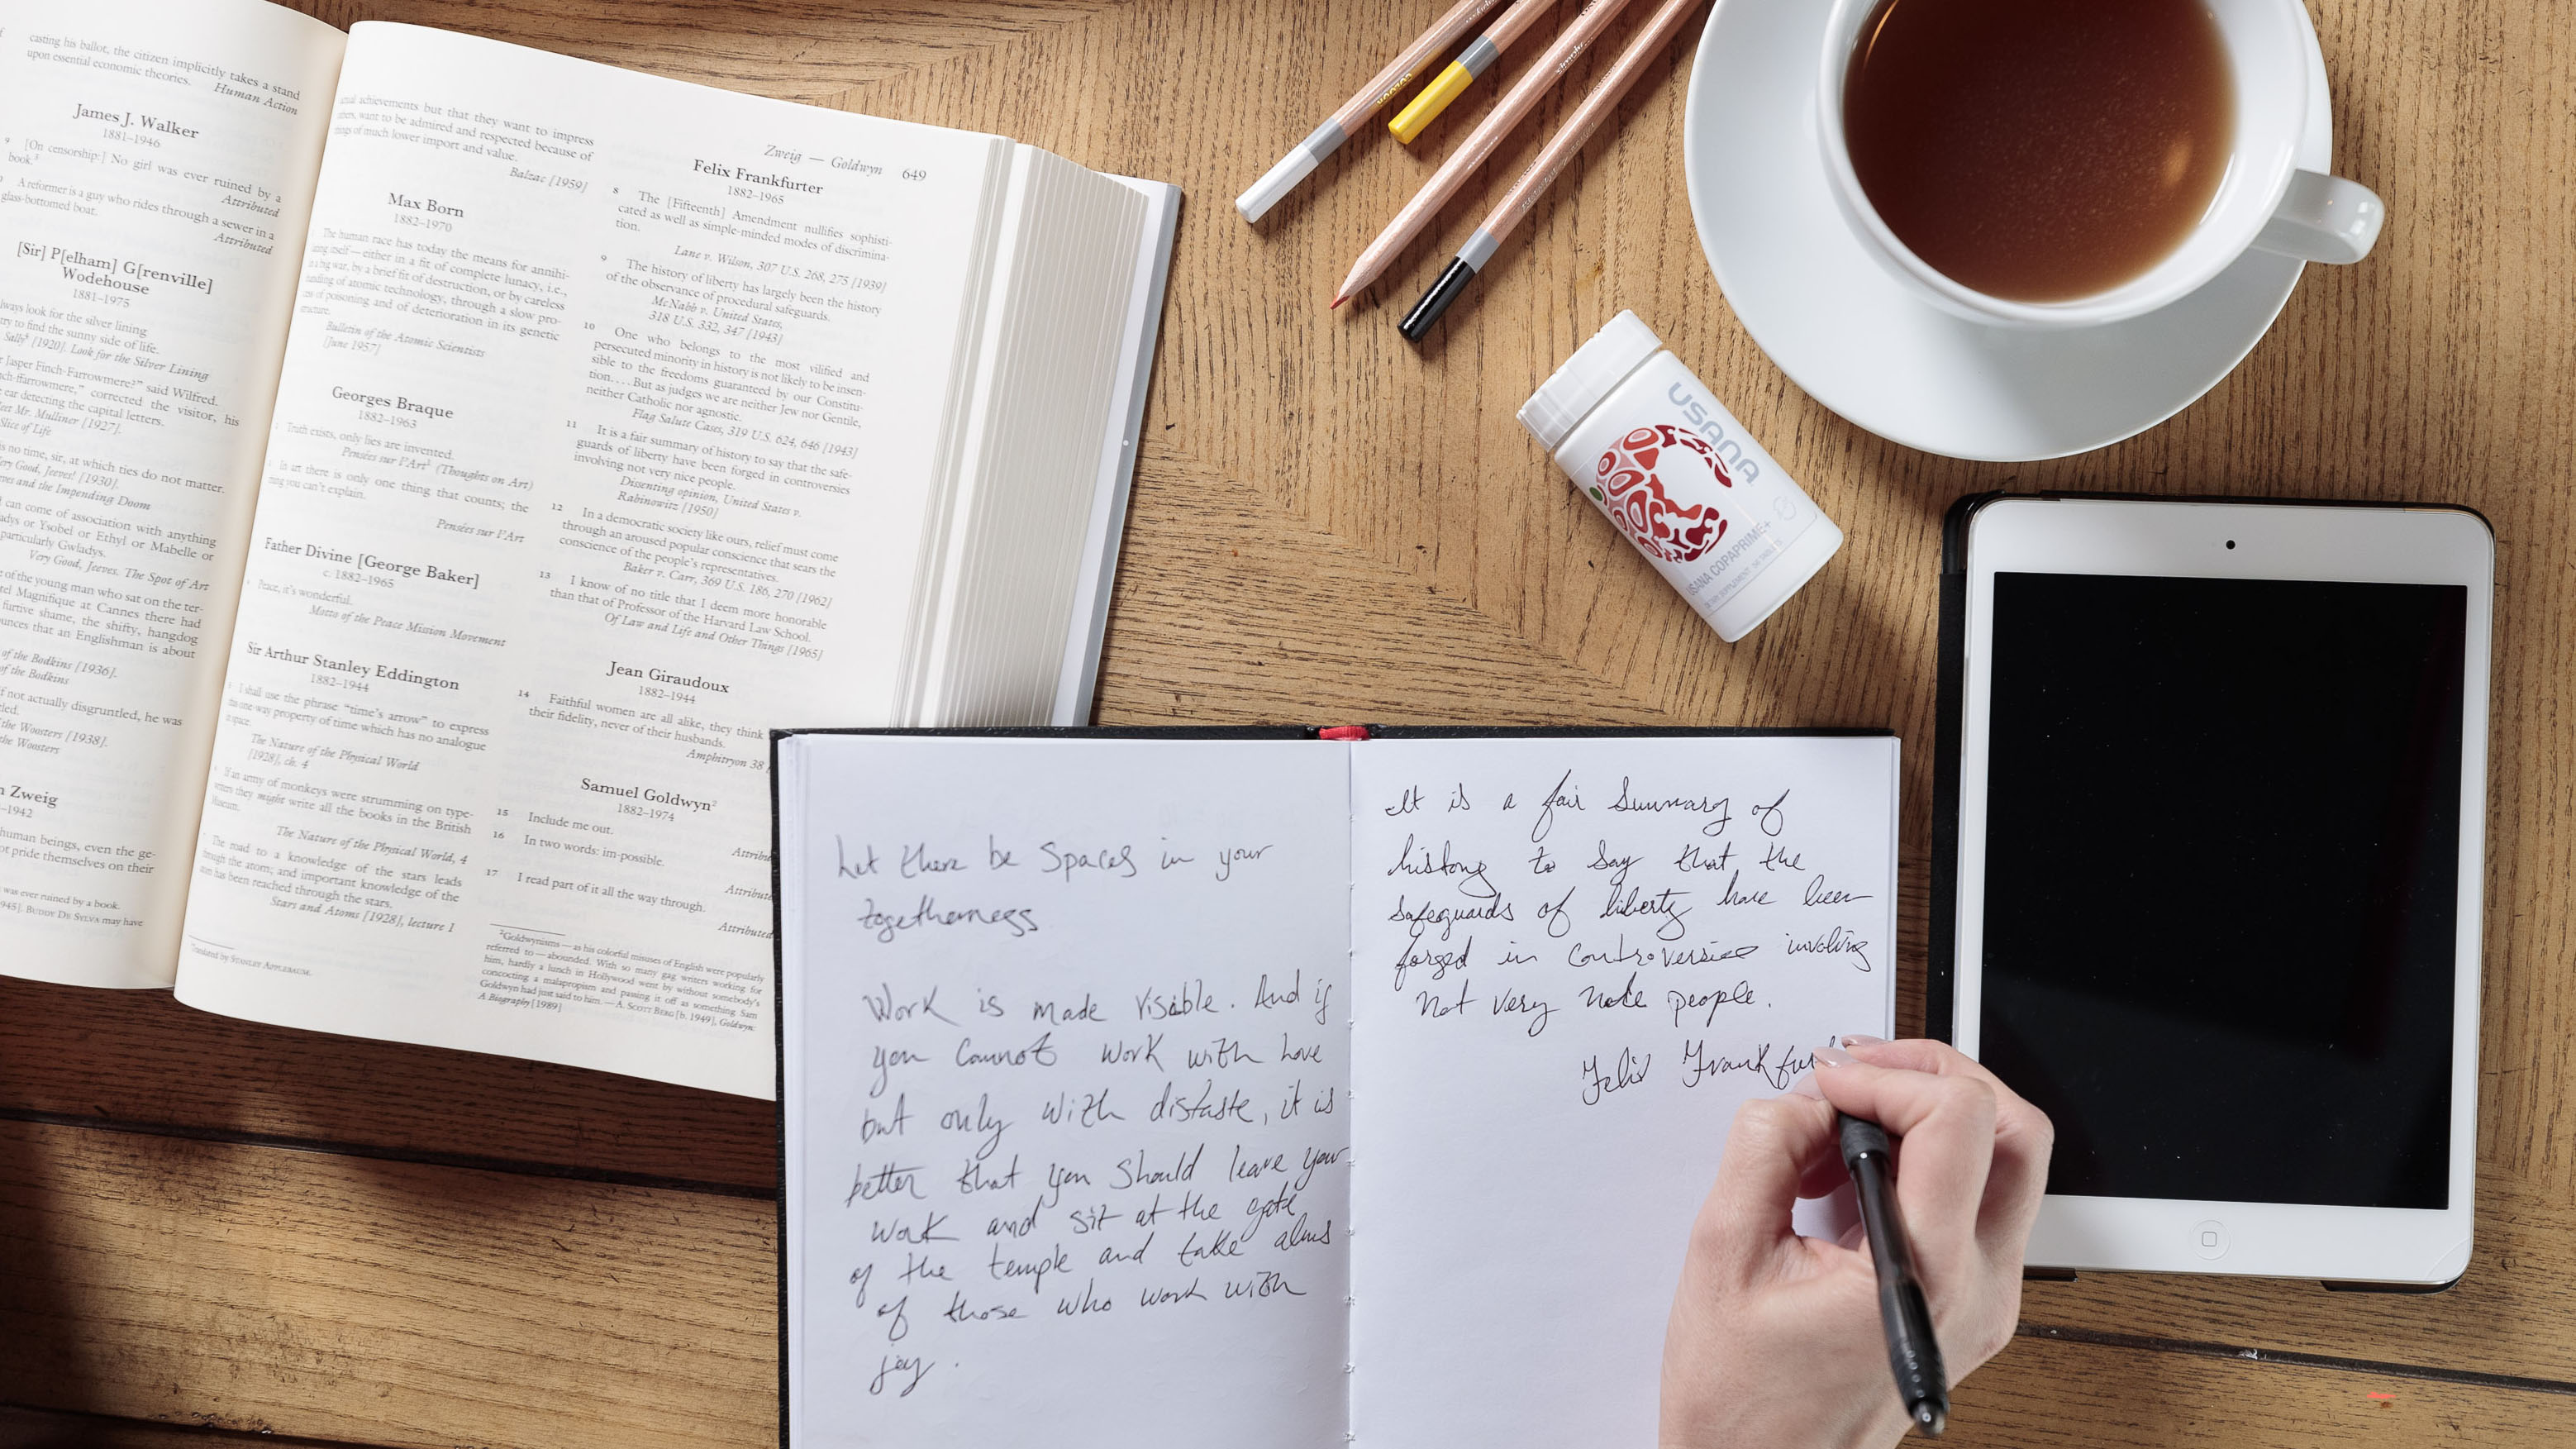 casting his ballot, the citizen implicitly takes a stand
upon essential economic theories.
Human Action
James J. Walker
1881–1946
9 [On censorship:] No girl was ever ruined by a
book.²
Attributed
A reformer is a guy who rides through a sewer in a
glass-bottomed boat.
Attributed
[Sir] P[elham] G[renville]
Wodehouse
1881–1975
always look for the silver lining
try to find the sunny side of life.
Sally³ [1920]. Look for the Silver Lining
Jasper Finch-Farrowmere?” said Wilfred.
corrected the visitor, his
ear detecting the capital letters.
Meet Mr. Mulliner [1927].
Slice of Life
is no time, sir, at which ties do not matter.
Very Good, Jeeves! [1930].
Jeeves and the Impending Doom
can come of association with anything
Gladys or Ysobel or Ethyl or Mabelle or
particularly Gwladys.
Very Good, Jeeves. The Spot of Art
of the young man who sat on the ter-
Magnifique at Cannes there had
furtive shame, the shifty, hangdog
announces that an Englishman is about
of the Bodkins [1936].
of the Bodkins
if not actually disgruntled, he was
the Woosters [1938].
the Woosters
Zweig
–1942
human beings, even the ge-
not pride themselves on their
was ever ruined by a book.
945]. BUDDY DE SYLVA may have
Zweig — Goldwyn 649
achievements but that they want to impress
others, want to be admired and respected because of
things of much lower import and value.
Balzac [1959]
Max Born
1882–1970
The human race has today the means for annihi-
lating itself—either in a fit of complete lunacy, i.e.,
in a big war, by a brief fit of destruction, or by careless
handling of atomic technology, through a slow pro-
cess of poisoning and of deterioration in its genetic
structure.
Bulletin of the Atomic Scientists
[June 1957]
Georges Braque
1882–1963
Truth exists, only lies are invented.
Pensées sur l’Art¹ (Thoughts on Art)
In art there is only one thing that counts; the
thing you can’t explain.
Pensées sur l’Art
Father Divine [George Baker]
c. 1882–1965
Peace, it’s wonderful.
Motto of the Peace Mission Movement
Sir Arthur Stanley Eddington
1882–1944
I shall use the phrase “time’s arrow” to express
this one-way property of time which has no analogue
in space.
The Nature of the Physical World
[1928], ch. 4
If an army of monkeys were strumming on type-
writers they might write all the books in the British
Museum.
The Nature of the Physical World, 4
The road to a knowledge of the stars leads
through the atom; and important knowledge of the
atom has been reached through the stars.
Stars and Atoms [1928], lecture 1
Translated by STANLEY APPLEBAUM.
Felix Frankfurter
1882–1965
8 The [Fifteenth] Amendment nullifies sophisti-
cated as well as simple-minded modes of discrimina-
tion.
Lane v. Wilson, 307 U.S. 268, 275 [1939]
9 The history of liberty has largely been the history
of the observance of procedural safeguards.
McNabb v. United States,
318 U.S. 332, 347 [1943]
10 One who belongs to the most vilified and
persecuted minority in history is not likely to be insen-
sible to the freedoms guaranteed by our Constitu-
tion. . . . But as judges we are neither Jew nor Gentile,
neither Catholic nor agnostic.
Flag Salute Cases, 319 U.S. 624, 646 [1943]
11 It is a fair summary of history to say that the safe-
guards of liberty have been forged in controversies
involving not very nice people.
Dissenting opinion, United States v.
Rabinowitz [1950]
12 In a democratic society like ours, relief must come
through an aroused popular conscience that sears the
conscience of the people’s representatives.
Baker v. Carr, 369 U.S. 186, 270 [1962]
13 I know of no title that I deem more honorable
than that of Professor of the Harvard Law School.
Of Law and Life and Other Things [1965]
Jean Giraudoux
1882–1944
14 Faithful women are all alike, they think
their fidelity, never of their husbands.
Amphitryon 38
Samuel Goldwyn²
1882–1974
15 Include me out.
16 In two words: im-possible.
17 I read part of it all the way through.
²Goldwynisms—as his colorful misuses of English were popularly
referred to—abounded. With so many gag writers working for
him, hardly a lunch in Hollywood went by without somebody’s
concocting a malapropism and passing it off as something Sam
Goldwyn had just said to him.—A. SCOTT BERG [b. 1949], Goldwyn:
A Biography [1989]
COLOUR
USANA
USANA COPAPRIME+
Let there be spaces in your
togetherness
Work is made visible. And if
you cannot work with love
but only with distaste, it is
better that you should leave your
work and sit at the gate
of the temple and take alms
of those who work with
joy.
It is a fair summary of
history to say that the
safeguards of liberty have been
forged in controversies involving
not very nice people.
Felix Frankfur